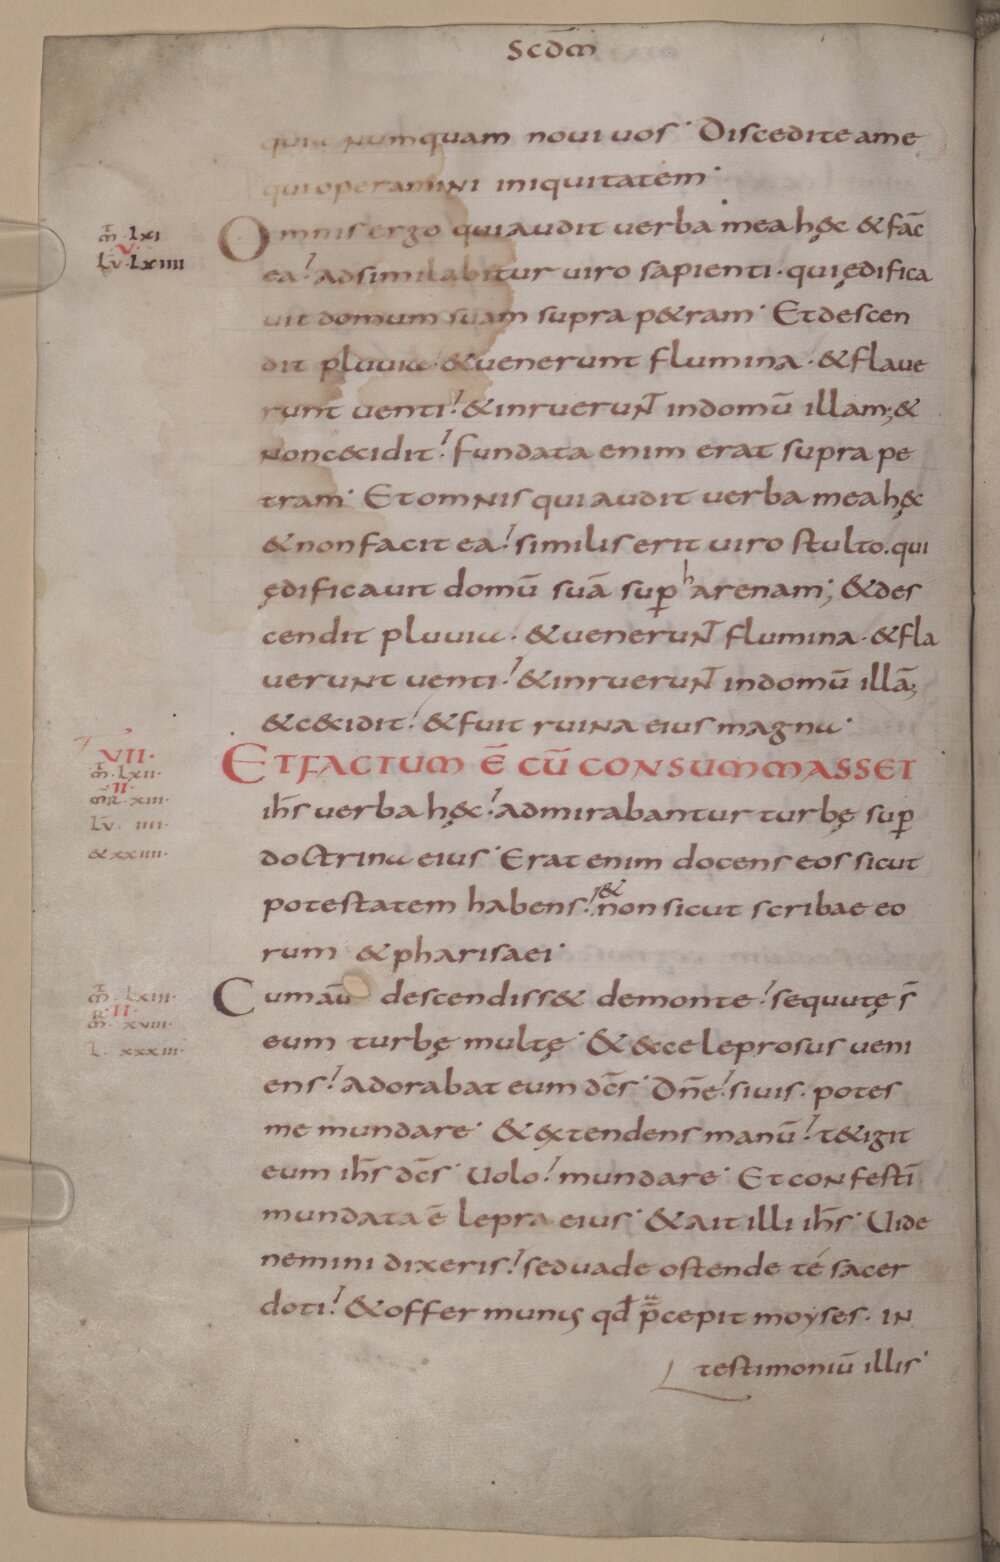 Scd̄m
quia numquam noui uos· Discedite ame
qui operamini iniquitatem·
m̄ ·lxi
V
Lū ·lxiiii
Omnis ergo qui audit uerba mea hęc & fac̄
ea? adsimilabitur uiro sapienti· qui ędifica
uit domum suam supra p&ram· Et descen
dit pluuia· & uenerunt flumina· & flaue
runt uenti? & inruerunt in domū illam; &
non cecidit? fundata enim erat supra pe
tram· Et omnis qui audit uerba mea hęc
& non facit ea? similis erit uiro stulto. qui
ędificauit domū suā sup̄ harenam; & des
cendit pluuia· & uenerunt flumina· & fla
uerunt uenti? & inruerunt in domū illā;
& cecidit? & fuit ruina eius magna·
VII·
m̄ ·lxii·
II
m̄R ·xiii·
Lū· iiii·
& xxiiii·
ET FACTUM Ē CŪ CONSUMMASSET
ih̄s uerba hęc? admirabantur turbę sup̄
doctrina eius· Erat enim docens eos sicut
potestatem habens? & non sicut scribae eo
rum & pharisaei·
m̄ ·lxiii·
II
m̄ xviii·
L· xxxiii·
Cum aū descendiss& demonte? sequutę s̄
eum turbę multę· & ecce leprosus ueni
ens? adorabat eum dc̄s· Dn̄e? si uis· potes
me mundare· & extendens manū? t&igit
eum ih̄s dc̄s· Uolo? mundare· Et confesti̅
mundata ē lepra eius· & ait illi ih̄s· Uide
nemini dixeris? sed uade ostende té sacer
doti? & offer munus qđ p̄cepit moyses· in
testimoniū illis·